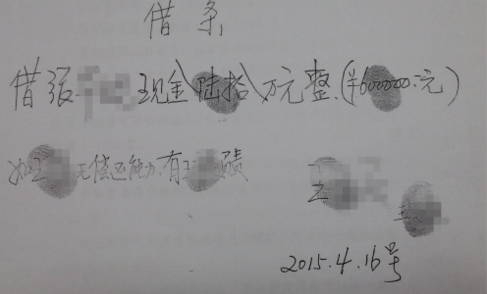 借条
借张 现金陆拾万元整.(¥600000.元)
如王 无偿还能力.有王 赎
王
王
2015.4.16号